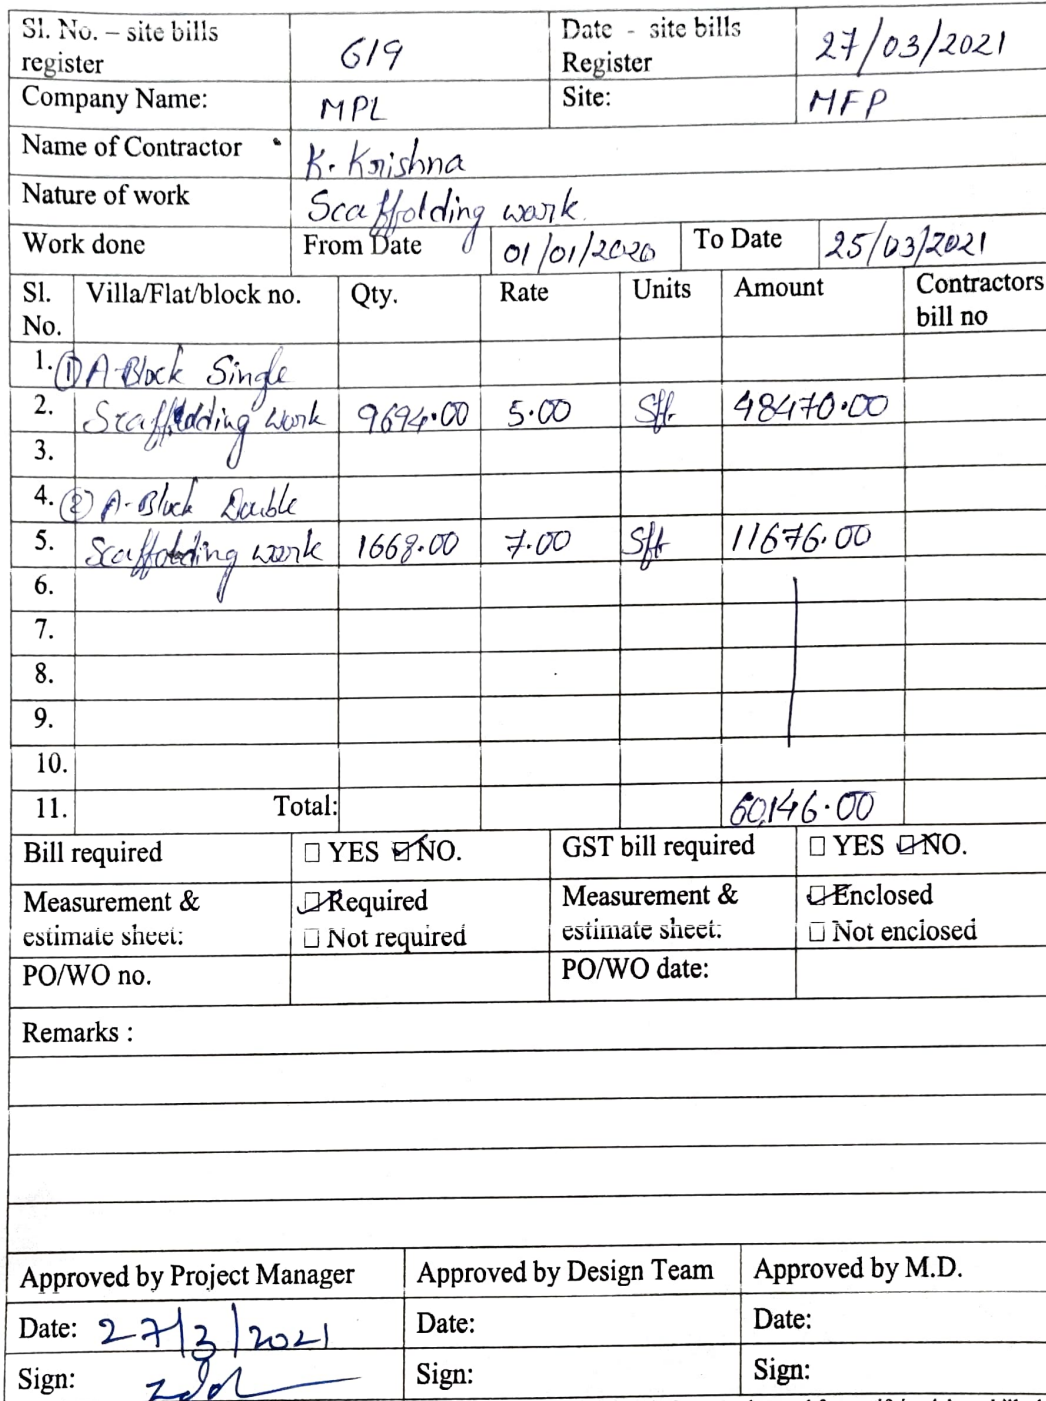 Sl. No. – site bills register 619 Date - site bills Register 27/03/2021
Company Name: MPL Site: MFP
Name of Contractor K. Krishna
Nature of work Scaffolding work
Work done From Date 01/01/2020 To Date 25/03/2021
Sl. No. Villa/Flat/block no. Qty. Rate Units Amount Contractors bill no
1. ① A-Block Single
2. Scaffolding work 9694.00 5.00 Sft. 48470.00
3.
4. ② A-Block Double
5. Scaffolding work 1668.00 7.00 Sft 11676.00
6.
7.
8.
9.
10.
11. Total: 60,146.00
Bill required ☐ YES ☑ NO. GST bill required ☐ YES ☑ NO.
Measurement & estimate sheet: ☑ Required ☐ Not required Measurement & estimate sheet: ☑ Enclosed ☐ Not enclosed
PO/WO no. PO/WO date:
Remarks :
Approved by Project Manager Approved by Design Team Approved by M.D.
Date: 27/3/2021 Date: Date:
Sign: Sign: Sign: